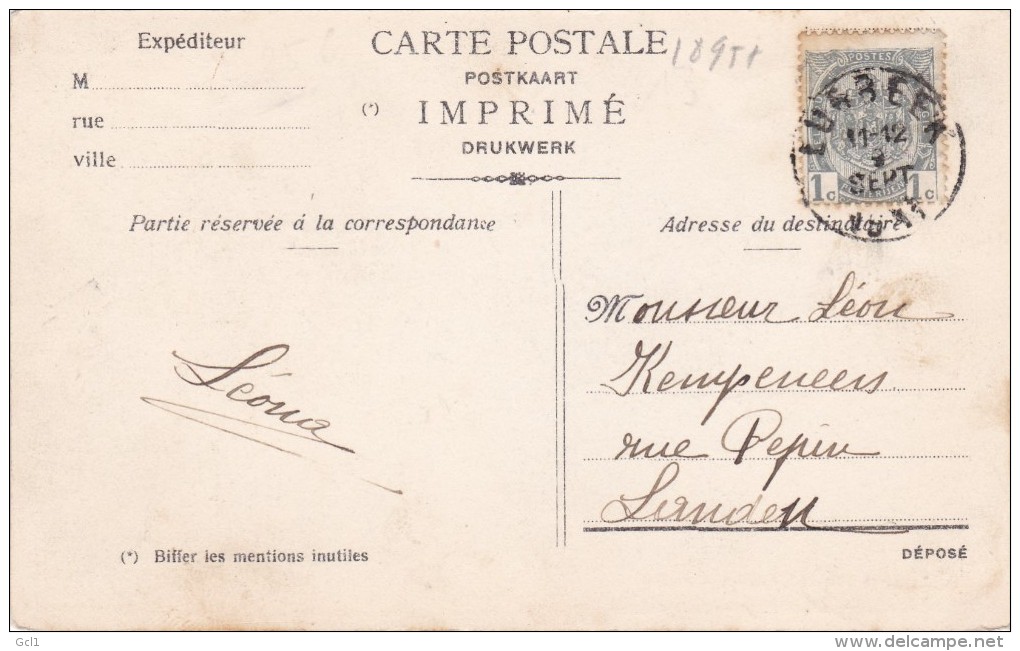 Expéditeur
M
rue
ville
CARTE POSTALE
POSTKAART
(*) IMPRIMÉ
DRUKWERK
POSTES
1c 1c
LUBBEEK
11-12
9
SEPT
Partie réservée á la correspondance
Adresse du destinataire
Monsieur Léon
Kempeneers
rue Pepin
Landen
Léona
(*) Biffer les mentions inutiles
DÉPOSÉ
Gcl1
www.delcampe.net